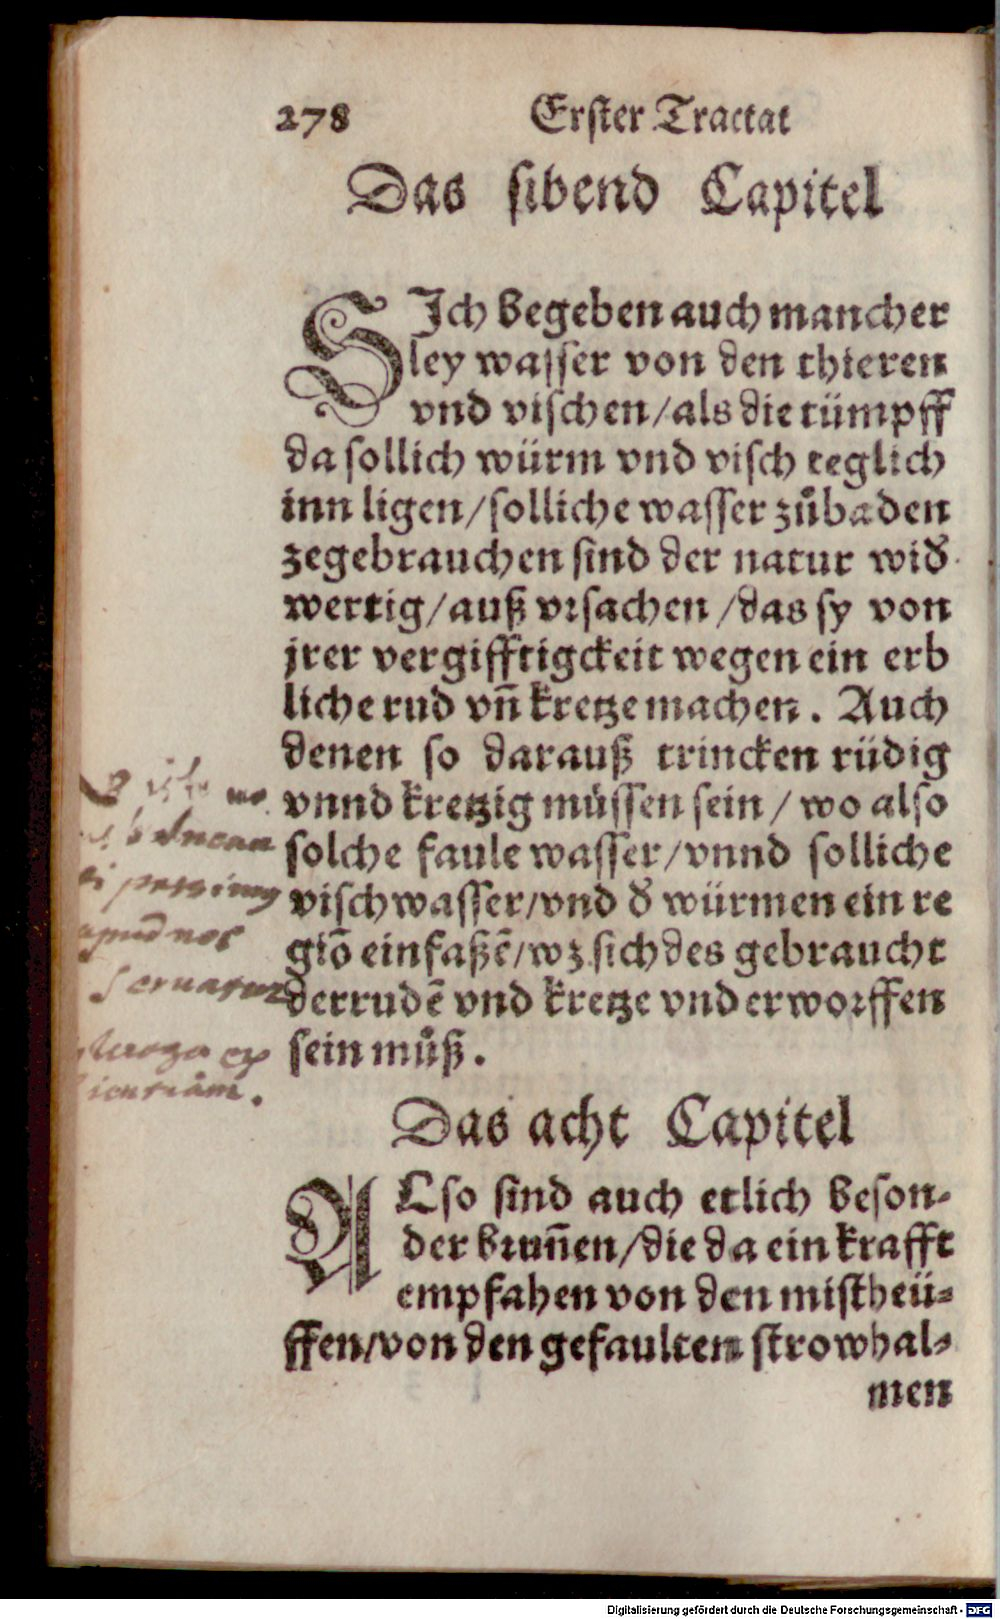 278 Erster Tractat
Das sibend Capitel
SIch begeben auch mancher
ley wasser von den thieren
vnd vischen/als die tümpff
da sollich würm vnd visch teglich
inn ligen/solliche wasser zůbaden
zegebrauchen sind der natur wid
wertig/auß vrsachen/das sy von
jrer vergifftigckeit wegen ein erb
liche rud vn̄ kretze machen. Auch
denen so darauß trincken rüdig
vnnd kretzig müssen sein/wo also
solche faule wasser/vnnd solliche
vischwasser/vnd d würmen ein re
giō einfaßē/wz sich des gebraucht
der rudē vnd kretze vnderworffen
sein můß.
apud nos
Das acht Capitel
ALso sind auch etlich beson-
der brun̄en/die da ein krafft
empfahen von den mistheü-
ffen/von den gefaulten strowhal-
men
Digitalisierung gefördert durch die Deutsche Forschungsgemeinschaft - DFG